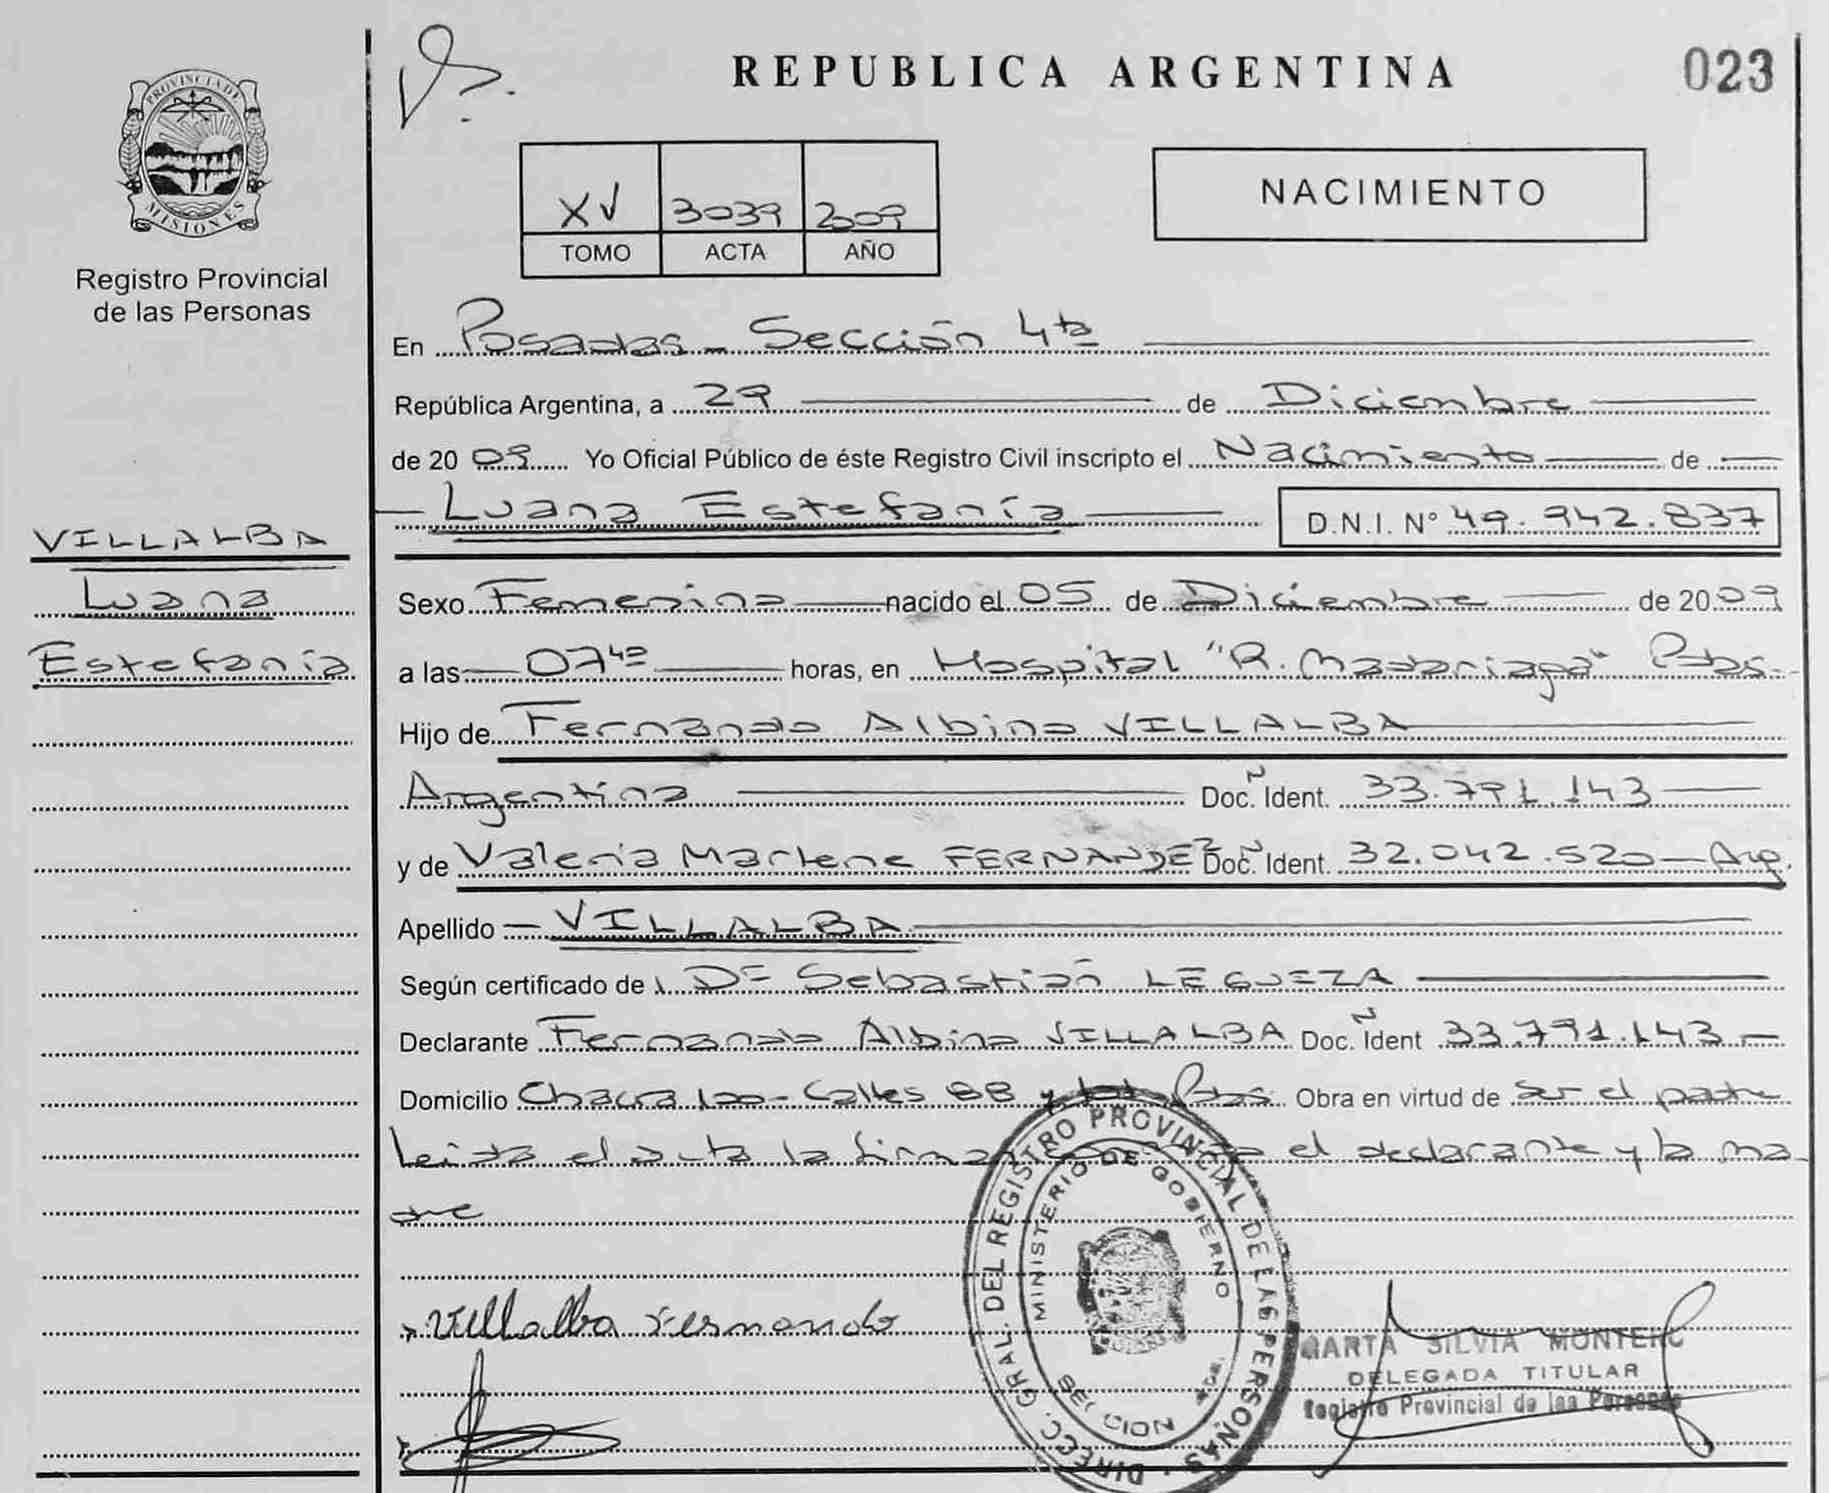 REPUBLICA ARGENTINA
023
PROVINCIA DE
MISIONES
Registro Provincial
de las Personas
XV 3039 2009
TOMO ACTA AÑO
NACIMIENTO
En Posadas - Sección 4ta
República Argentina, a 29 de Diciembre
de 20 09 Yo Oficial Público de éste Registro Civil inscripto el Nacimiento de
Luana Estefanía D.N.I. Nº 49.942.837
VILLALBA
Luana
Estefanía
Sexo Femenino nacido el 05 de Diciembre de 20 09
a las 07 40 horas, en Hospital "R. Madariaga" Pdas.
Hijo de Fernando Albino VILLALBA
Argentino Doc. Ident. Nº 33.791.143
y de Valeria Marlene FERNANDEZ Doc. Ident. Nº 32.042.520 - Arg.
Apellido VILLALBA
Según certificado de Dr Sebastián LEGUEZA
Declarante Fernando Albino VILLALBA Doc. Ident Nº 33.791.143
Domicilio Chacra 120 - Calles 88 y Pdas. Obra en virtud de ser el padre
Leida el acta la firma el declarante y la ma-
dre
Villalba Fernando
DIREC. GRAL. DEL REGISTRO PROVINCIAL DE LAS PERSONAS
MINISTERIO DE GOBIERNO
MARTA SILVIA MONTERO
DELEGADA TITULAR
Registro Provincial de las Personas